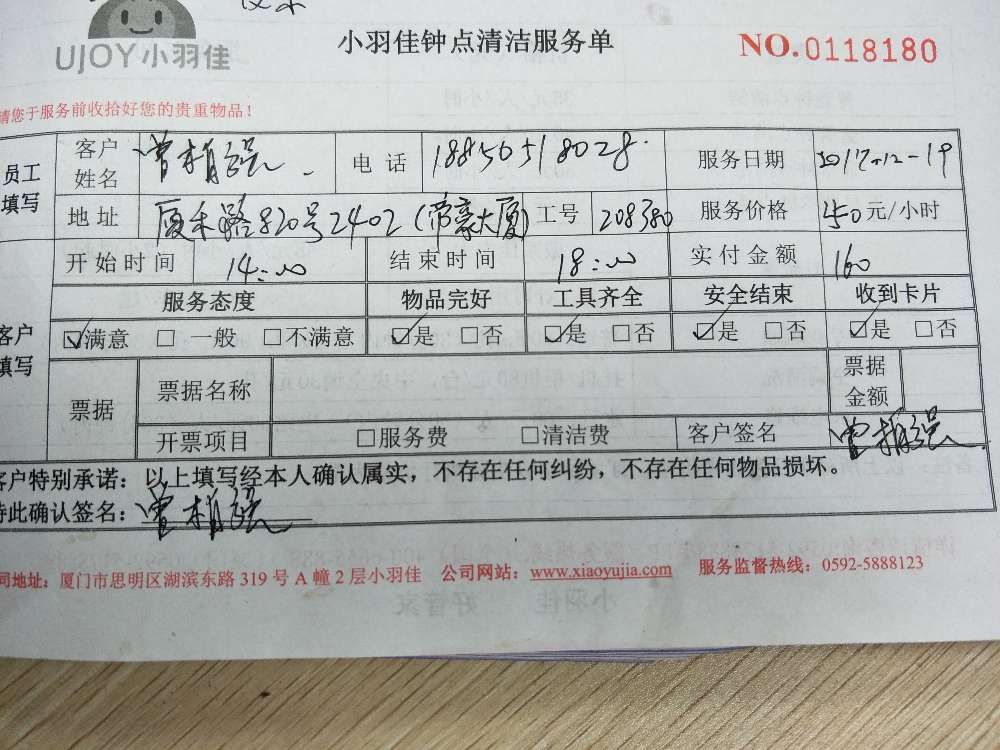 UJOY小羽佳
小羽佳钟点清洁服务单
NO.0118180
请您于服务前收拾好您的贵重物品！
员工填写 客户姓名 电话 18850518028 服务日期 2017-12-19
地址 厦禾路820号2402(帝豪大厦) 工号 208380 服务价格 元/小时
开始时间 14:00 结束时间 18:00 实付金额 160
客户填写 服务态度 物品完好 工具齐全 安全结束 收到卡片
☑满意 □一般 □不满意 ☑是 □否 ☑是 □否 ☑是 □否 ☑是 □否
票据 票据名称 票据金额
开票项目 □服务费 □清洁费 客户签名
客户特别承诺：以上填写经本人确认属实，不存在任何纠纷，不存在任何物品损坏。
特此确认签名：
司地址：厦门市思明区湖滨东路 319 号 A 幢 2 层小羽佳 公司网站：www.xiaoyujia.com 服务监督热线：0592-5888123